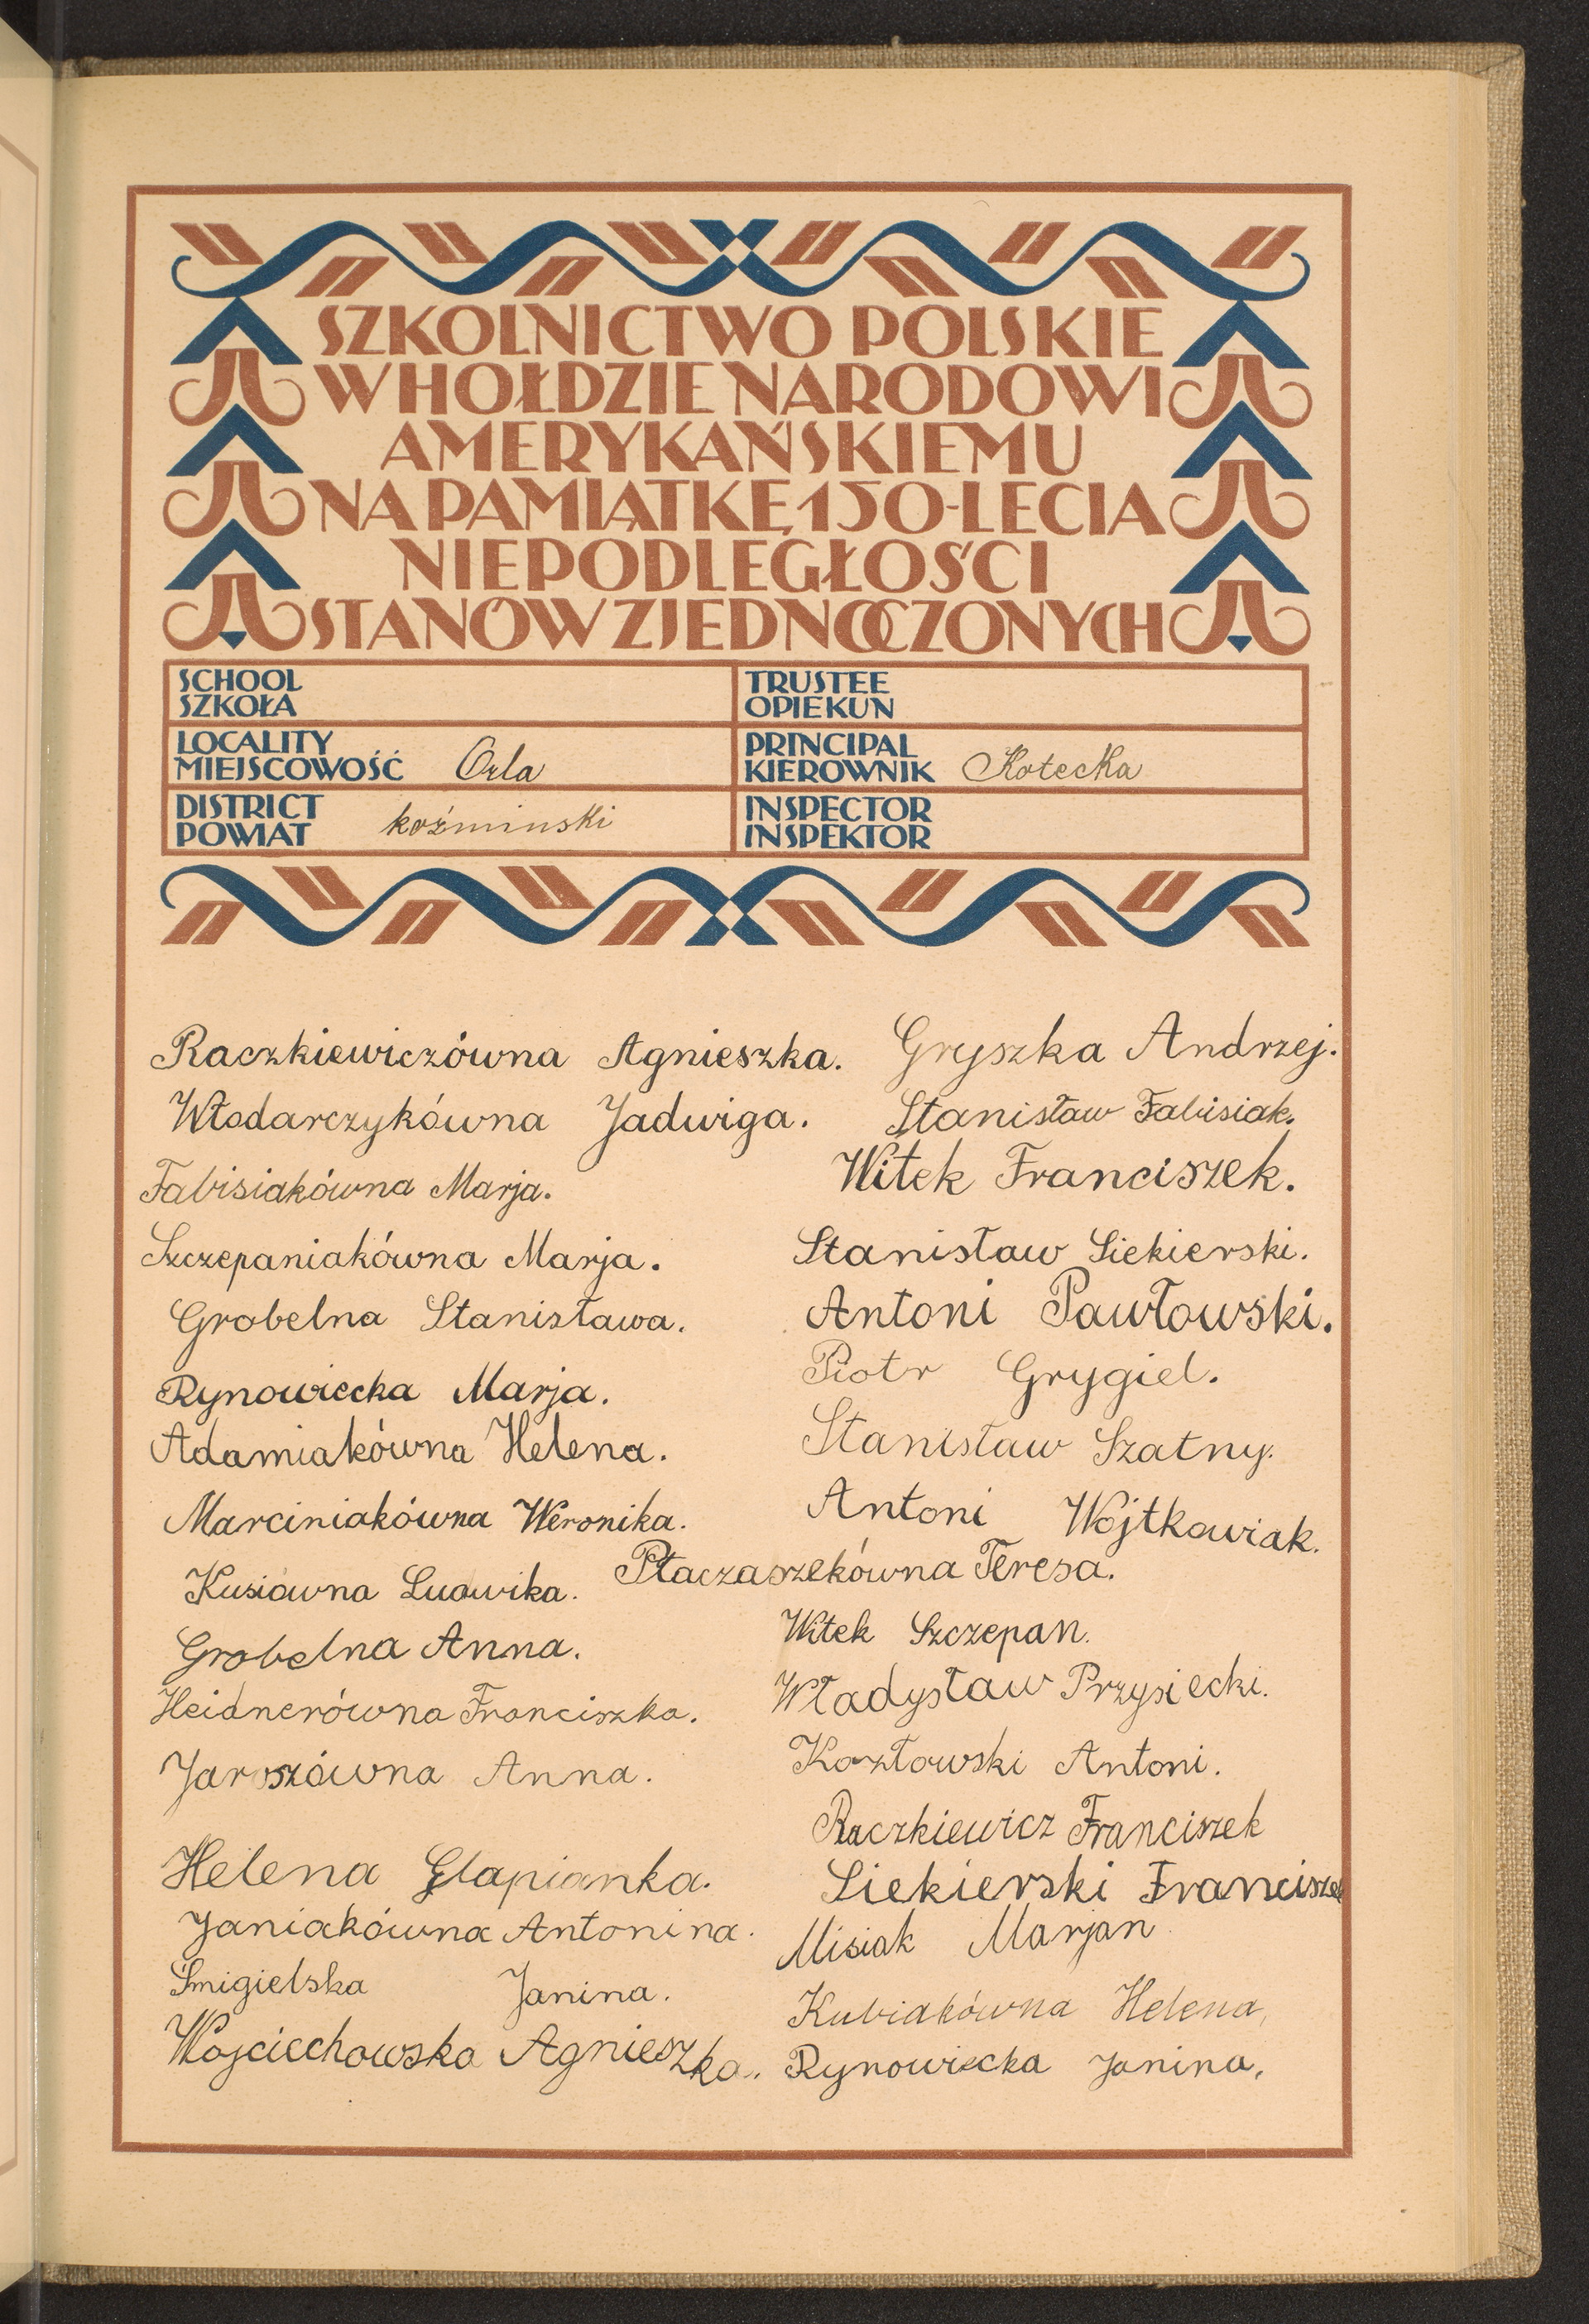 SZKOLNICTWO POLSKIE
W HOŁDZIE NARODOWI
AMERYKAŃSKIEMU
NA PAMIĄTKĘ 150-LECIA
NIEPODLEGŁOŚCI
STANÓW ZJEDNOCZONYCH
SCHOOL
SZKOŁA
TRUSTEE
OPIEKUN
LOCALITY
MIEJSCOWOŚĆ Orla
PRINCIPAL
KIEROWNIK Kotecka
DISTRICT
POWIAT koźminski
INSPECTOR
INSPEKTOR
Raczkiewiczówna Agnieszka.
Włodarczykówna Jadwiga.
Fabisiakówna Marja.
Szczepaniakówna Marja.
Grobelna Stanisława.
Rynowiecka Marja.
Adamiakówna Helena.
Marciniakówna Weronika.
Kusiówna Ludwika.
Grobelna Anna.
Heidnerówna Franciszka.
Jaroszówna Anna.
Helena Glapianka.
Janiakówna Antonina.
Śmigielska Janina.
Wojciechowska Agnieszka.
Gryszka Andrzej.
Stanisław Fabisiak.
Witek Franciszek.
Stanisław Siekierski.
Antoni Pawłowski.
Piotr Grygiel.
Stanisław Szatny.
Antoni Wojtkowiak.
Ptaczaszekówna Teresa.
Witek Szczepan.
Władysław Przysiecki.
Kozłowski Antoni.
Raczkiewicz Franciszek
Siekierski Franciszek
Misiak Marjan
Kubiakówna Helena,
Rynowiecka Janina,